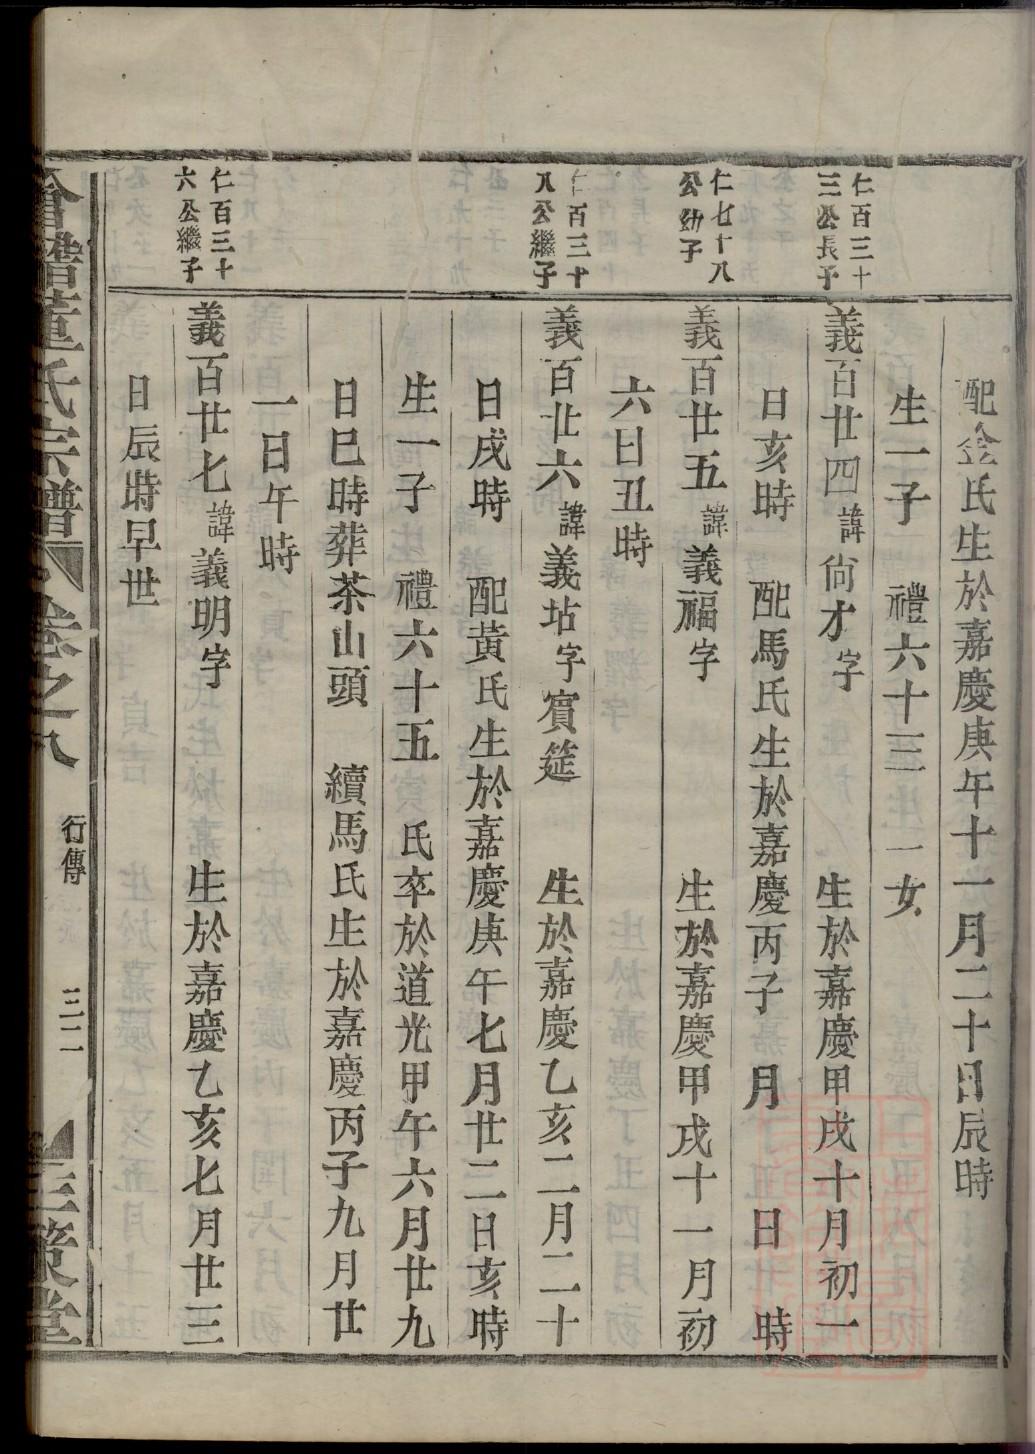 配金氏生於嘉慶庚午十一月二十日辰時
生一子 禮六十三 一女
仁百三十
三公長子
義百廿四 諱尙才 字 生於嘉慶甲戌十月初一
日亥時 配馬氏生於嘉慶丙子 月 日 時
仁七十八
公幼子
義百廿五 諱義福 字 生於嘉慶甲戌十一月初
六日丑時
仁百三十
八公繼子
義百廿六 諱義坫 字賔筵 生於嘉慶乙亥二月二十
日戌時 配黃氏生於嘉慶庚午七月廿二日亥時
生一子 禮六十五 氏卒於道光甲午六月廿九
日巳時葬茶山頭 續馬氏生於嘉慶丙子九月廿
一日午時
仁百三十
六公繼子
義百廿七 諱義明 字 生於嘉慶乙亥七月廿三
日辰時早世
董氏宗譜 卷之八 行傳 三二 三策堂